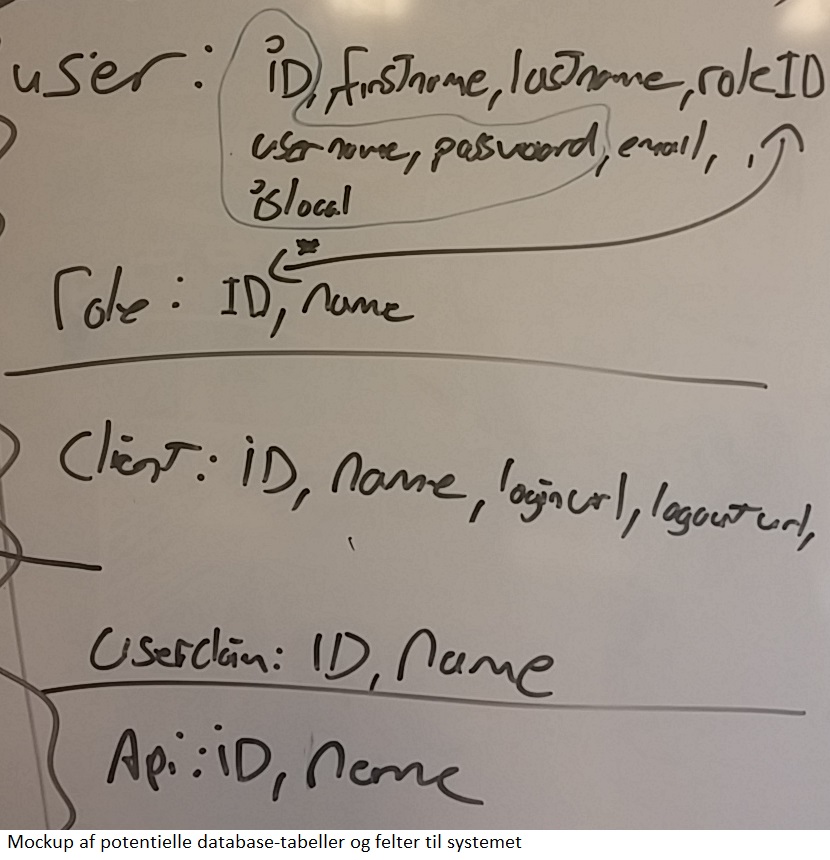 user: iD, firstname, lastname, roleID
username, password, email, ,
islocal
role: ID, name
Client: iD, name, loginurl, logouturl,
Userclaim: ID, name
Api: iD, name
Mockup af potentielle database-tabeller og felter til systemet